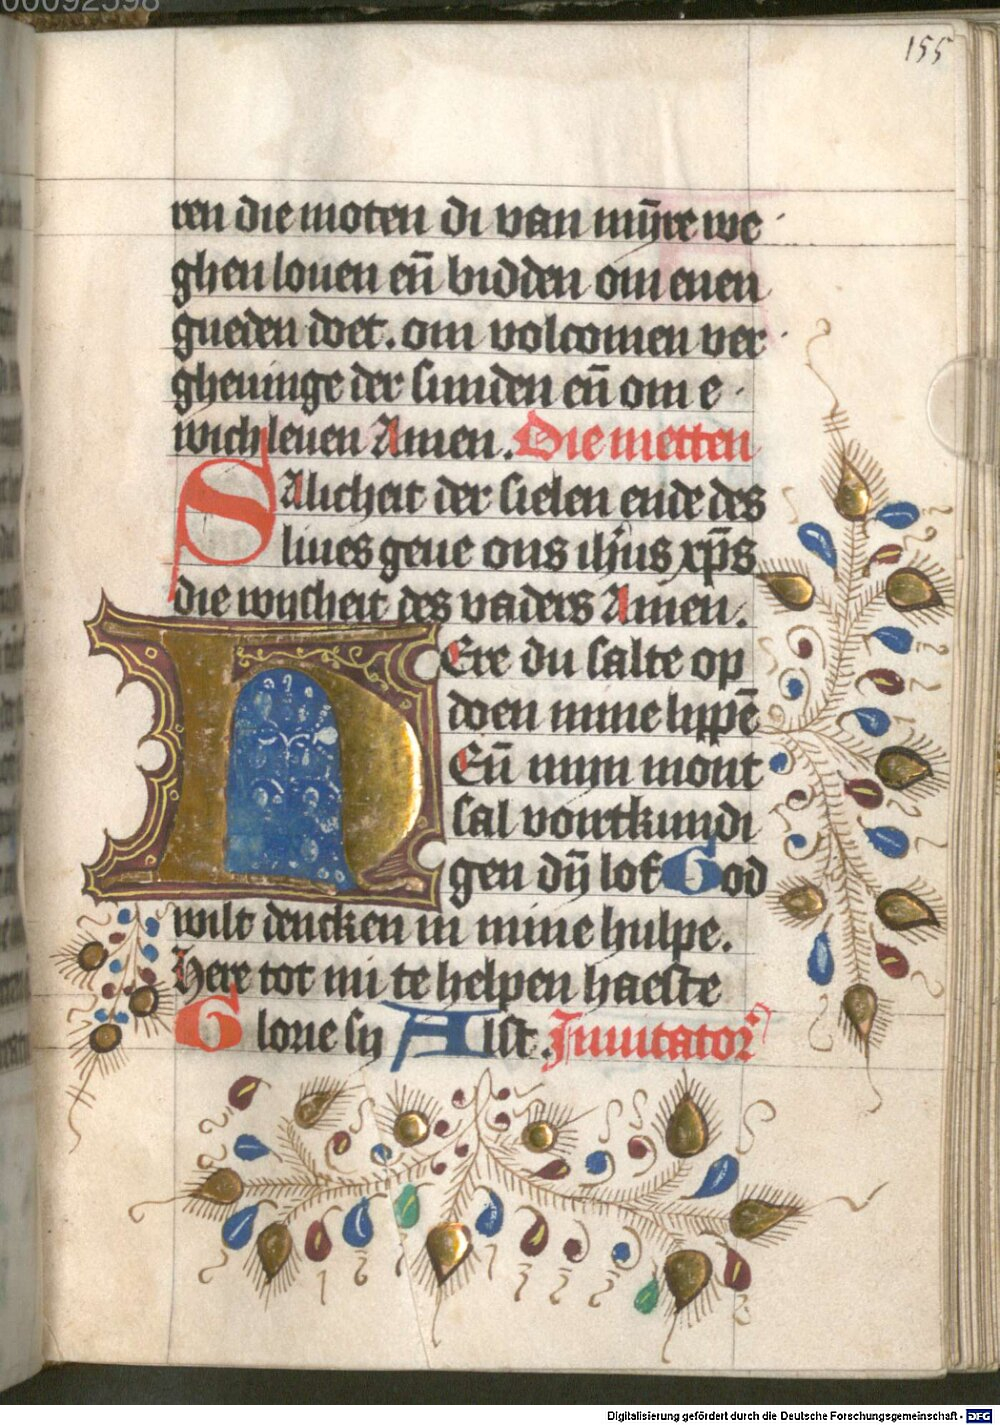 155
ren die moten di van mỹre we
ghen louen en̄ bidden om enen
gueden doet. om volcomen ver
gheuinge der sunden en̄ om e
wich leuen Amen. Die metten
SAlicheit der sielen ende des
liues geue ons ih̄us xp̄s
die wijsheit des vaders Amen.
HEre du salte op
doen mine lippē
En̄ mijn mont
sal vortkundi
gen dij lof God
wilt dencken in mine hulpe.
Here tot mi te helpen haeste
Glorie sij Alst. Inuitator
Digitalisierung gefördert durch die Deutsche Forschungsgemeinschaft - DFG